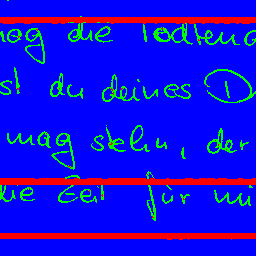 mag die Todten
st du deines D
mag stehn, der
die Zeit für mi